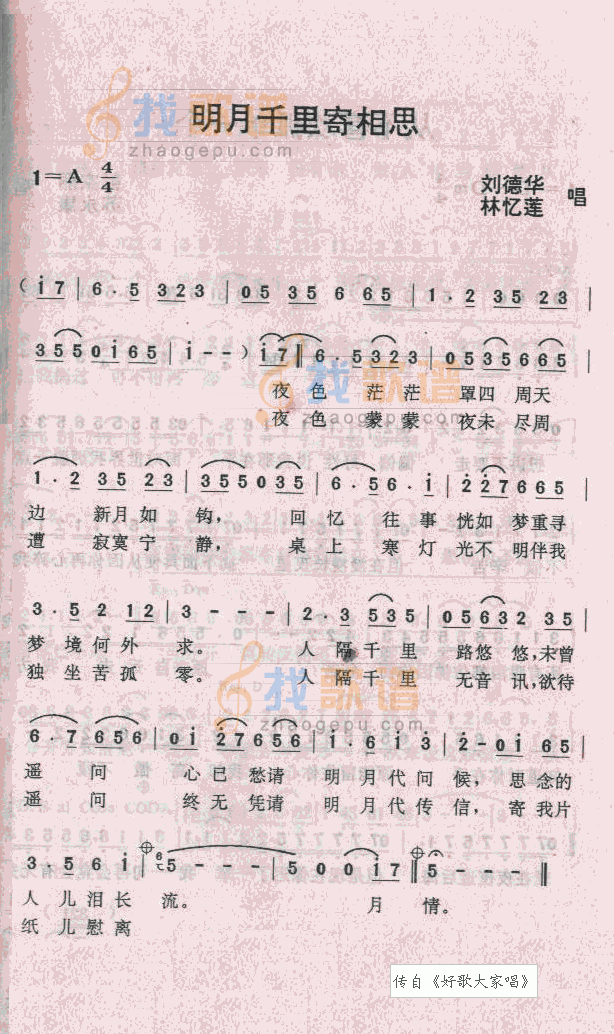 找歌谱
明月千里寄相思
zhaogepu.com
1=A 4/4
刘德华
林忆莲 唱
(i7|6·5 323|05 35 6 65|1·2 35 23|
3550i65|i--)i7‖6·5323|0535665|
夜色茫茫 罩四周天
夜色蒙蒙 夜未尽周
找歌谱
zhaogepu.com
1·2 35 23|355035|6·56·i|227665|
边 新月如 钩, 回忆往事恍如梦重寻
遭 寂寞宁 静, 桌上寒灯光不明伴我
3·52 12|3---|2·3 535|05632 35|
梦境何外求。 人隔千里 路悠悠,末曾
独坐苦孤零。 人隔千里 无音讯,欲待
找歌谱
zhaogepu.com
6·7656|0i27656|i·6i3|2-0i 65|
遥问 心已愁请 明月代问候, 思念的
遥问 终无凭请 明月代传信, 寄我片
3·56i|5---|500i7‖5---‖
人儿泪长流。 月情。
纸儿慰离
传自《好歌大家唱》